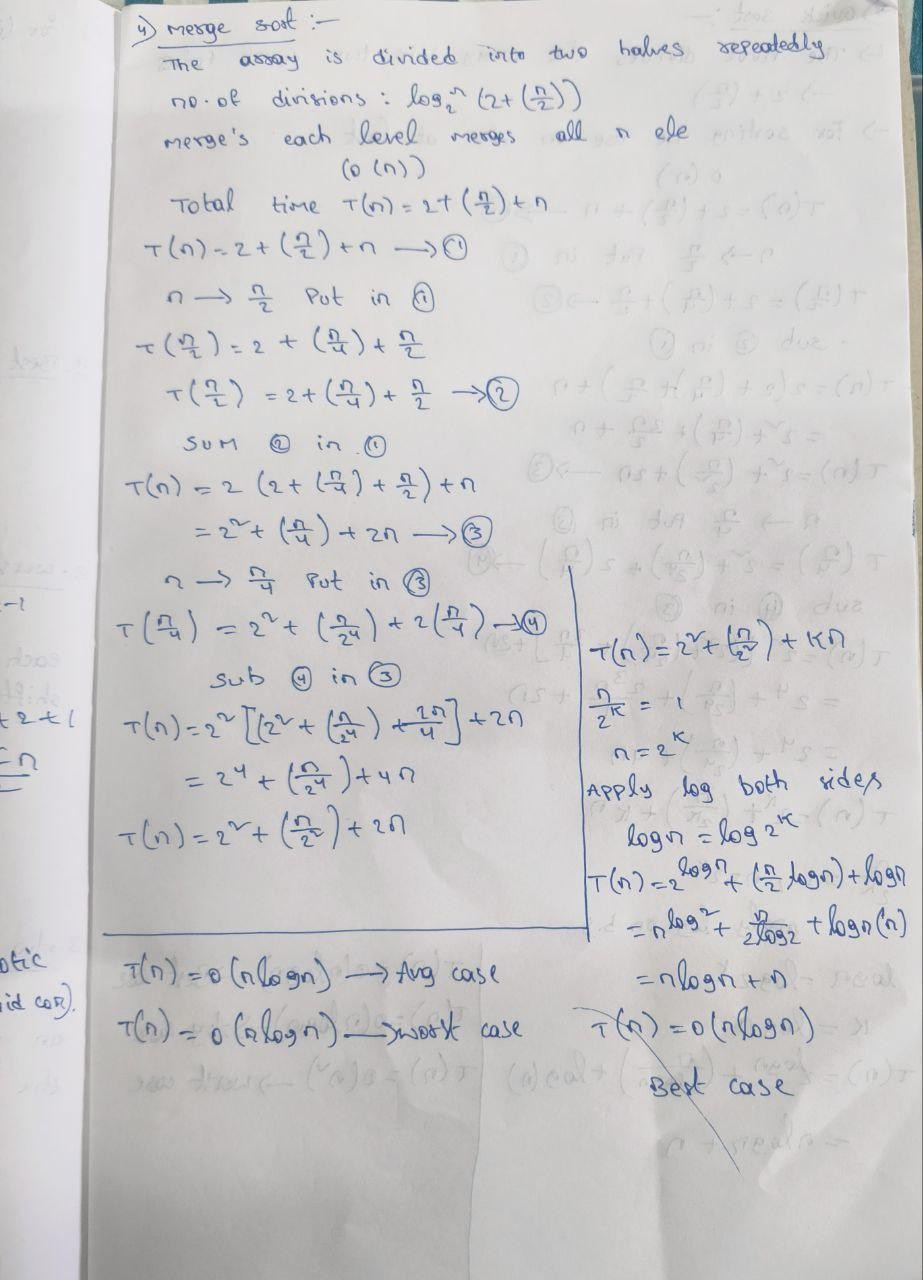 4) Merge sort :-
The array is divided into two halves repeatedly
no. of divisions : log₂ⁿ (2+(n/2))
Merge's each level merges all n ele
(o (n))
Total time T(n) = 2+(n/2)+n
T(n) = 2+(n/2)+n → ①
n → n/2 Put in ①
T(n/2) = 2 + (n/4) + n/2
T(n/2) = 2+(n/4) + n/2 → ②
SUM ② in ①
T(n) = 2 (2+(n/4)+n/2)+n
= 2²+(n/4)+2n → ③
n → n/4 Put in ③
T(n/4) = 2²+(n/2⁴)+2(n/4) → ④
Sub ④ in ③
T(n) = 2² [(2²+(n/2⁴)+2n/4] + 2n
= 2⁴+(n/2⁴)+4n
T(n) = 2²+(n/2²)+2n
T(n) = 2²+(n/2²)+Kn
n/2ᴷ = 1
n = 2ᴷ
Apply log both sides
logn = log2ᴷ
T(n) = 2^logn + (n/2 logn) + logn
= n^log2 + n/2log2 + logn(n)
= nlogn + n
T(n) = o(nlogn)
Best case
T(n) = o(nlogn) → Avg case
T(n) = o(nlogn) → worst case
-1
+2+1
=n
otic
id cor).